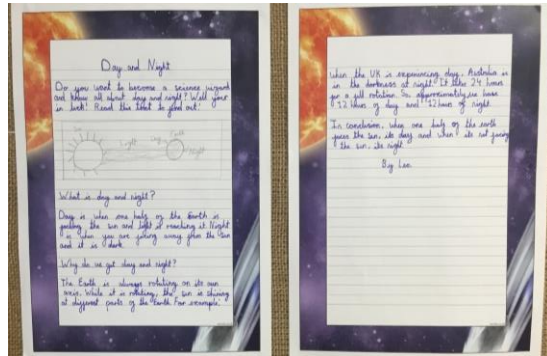 Day and Night
Do you want to become a science wizard
and know all about day and night? Well your
in luck! Read this text to find out!
Sun
Light
Day
Earth
Night
What is day and night?
Day is when one half of the Earth is
facing the sun and light is reaching it. Night
is when you are facing away from the Sun
and it is dark.
Why do we get day and night?
The Earth is always rotating on its own
axis. While it is rotating, the sun is shining
at different parts of the Earth. For example:
when the UK is experiencing day, Australia is
in the darkness at night. It takes 24 hours
for a full rotation. So approximately we have
12 hours of day and 12 hours of night.
In conclusion, when one half of the earth
faces the sun, its day and when its not facing
the sun, its night.
By Lee